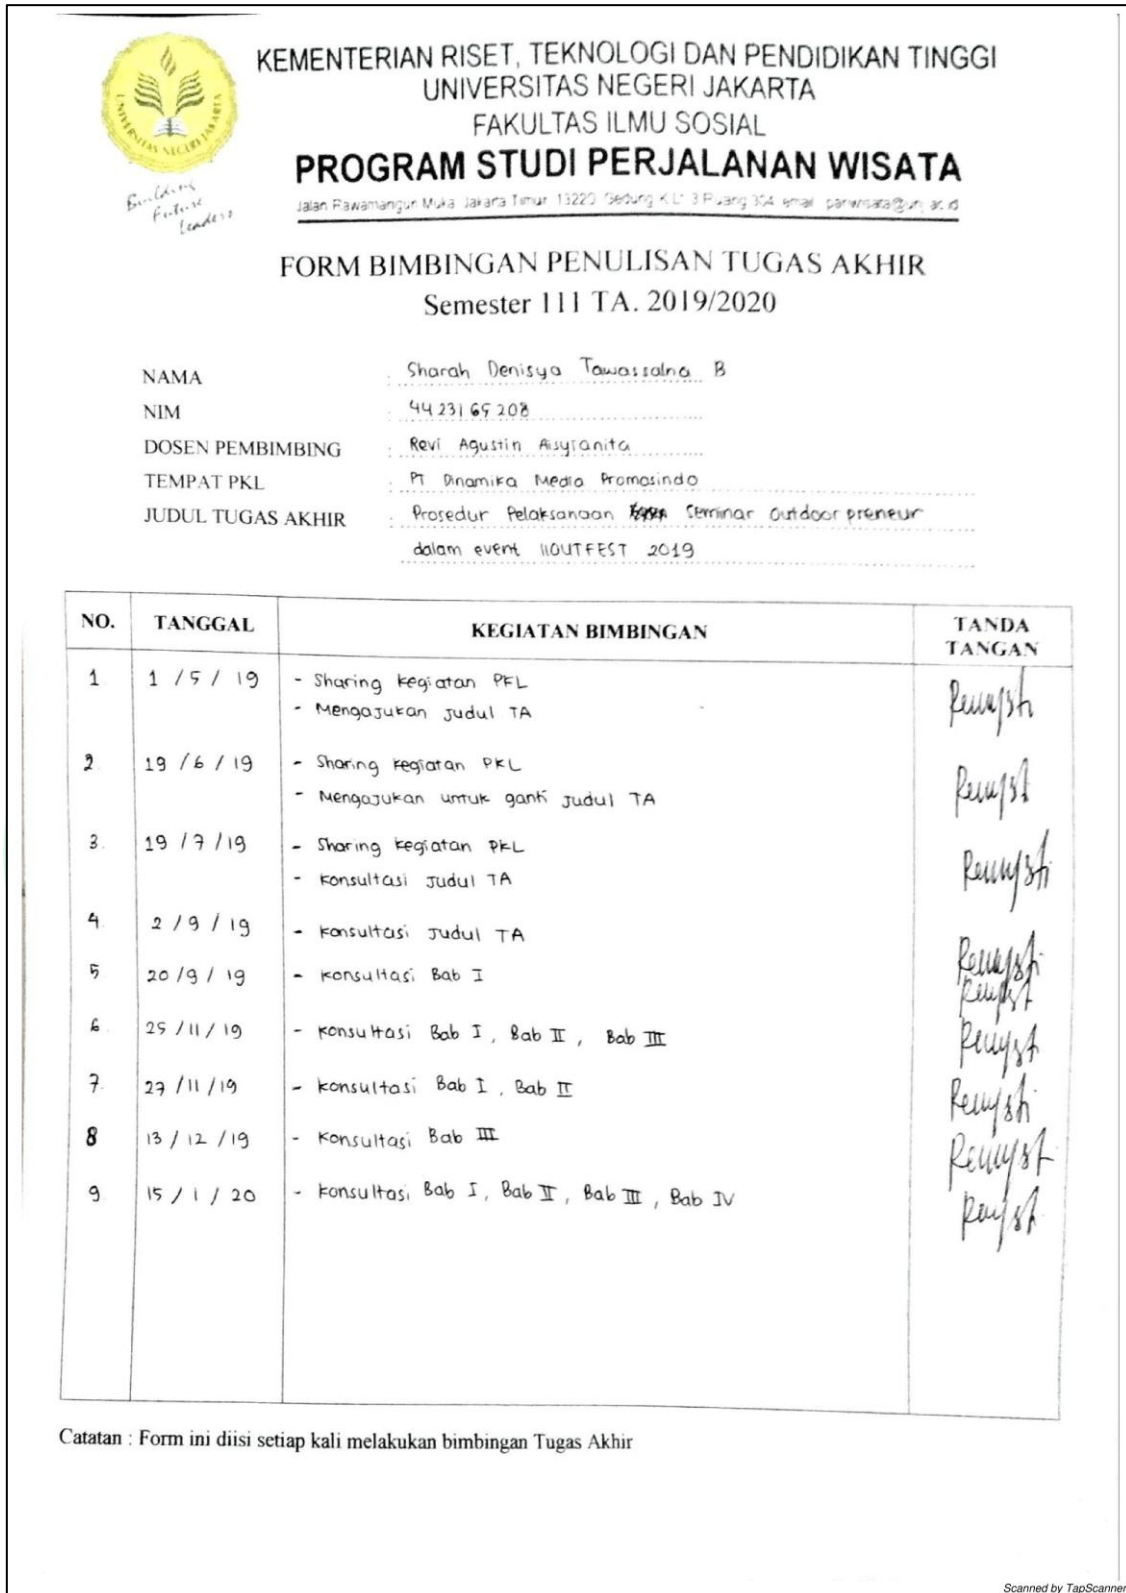 KEMENTERIAN RISET, TEKNOLOGI DAN PENDIDIKAN TINGGI
UNIVERSITAS NEGERI JAKARTA
FAKULTAS ILMU SOSIAL
PROGRAM STUDI PERJALANAN WISATA
UNIVERSITAS NEGERI JAKARTA
Building
Future
Leaders
Jalan Rawamangun Muka Jakarta Timur 13220 Gedung K Lt 3 Ruang 304 email
FORM BIMBINGAN PENULISAN TUGAS AKHIR
Semester 111 TA. 2019/2020
NAMA : Sharah Denisya Tawassalna B
NIM : 4423165208
DOSEN PEMBIMBING : Revi Agustin Aisyianita
TEMPAT PKL : PT Dinamika Media Promosindo
JUDUL TUGAS AKHIR : Prosedur Pelaksanaan Seminar outdoor preneur
dalam event IIOUTFEST 2019
NO. TANGGAL KEGIATAN BIMBINGAN TANDA TANGAN
1 1 / 5 / 19 - Sharing kegiatan PKL
- Mengajukan Judul TA
2. 19 / 6 / 19 - Sharing kegiatan PKL
- Mengajukan untuk ganti Judul TA
3. 19 / 7 / 19 - Sharing kegiatan PKL
- konsultasi Judul TA
4. 2 / 9 / 19 - konsultasi Judul TA
5 20 / 9 / 19 - konsultasi Bab I
6. 25 / 11 / 19 - konsultasi Bab I, Bab II, Bab III
7. 27 / 11 / 19 - konsultasi Bab I, Bab II
8 13 / 12 / 19 - Konsultasi Bab III
9. 15 / 1 / 20 - konsultasi Bab I, Bab II, Bab III, Bab IV
Catatan : Form ini diisi setiap kali melakukan bimbingan Tugas Akhir
Scanned by TapScanner